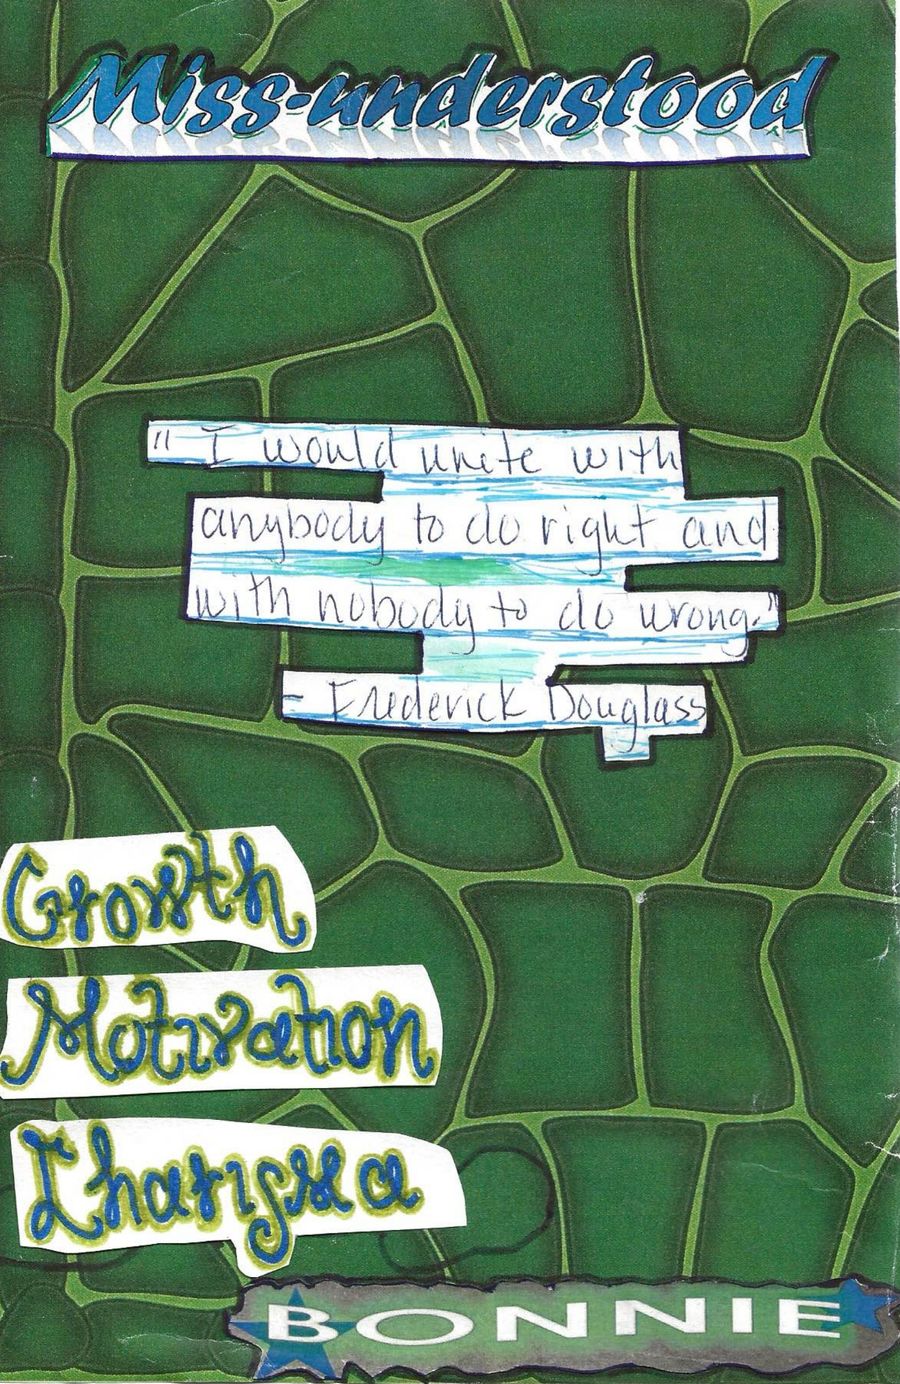 Miss-understood
"I would unite with
anybody to do right and
with nobody to do wrong."
- Frederick Douglass
Growth
Motivation
Charissa
BONNIE